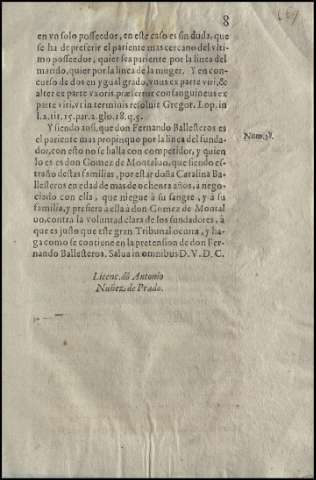 8
en vn solo posseedor, en este caso es sin duda, que
se ha de preferir el pariente mas cercano del vlti-
mo posseedor, quier sea pariente por la linea del
marido, quier por la linea de la muger. Y en con-
curso de dos en ygual grado, vnus ex parte viri, &
alter ex parte vxoris, præfertur consanguineus ex
parte viri, vt in terminis resoluit Gregor. Lop. in
l. 2. tit. 15. par. 2. glo. 18. q. 5.
Y siendo assi, que don Fernando Ballesteros es
el pariente mas propinquo por la linea del funda-
dor, con esto no se halla con competidor, y quien
lo es es don Gomez de Montaluo, que siendo es-
traño destas familias, por estar doña Catalina Ba-
llesteros en edad de mas de ochenta años, à nego-
ciado con ella, que niegue à su sangre, y à su
familia, y prefiera à ella à don Gomez de Montal
uo, contra la voluntad clara de los fundadores, à
que es justo que este gran Tribunal ocurra, y ha-
ga como se contiene en la pretension de don Fer-
nando Ballesteros. Salua in omnibus D. V. D. C.
Num. 38.
Licenc. dõ Antonio
Nuñez de Prado.